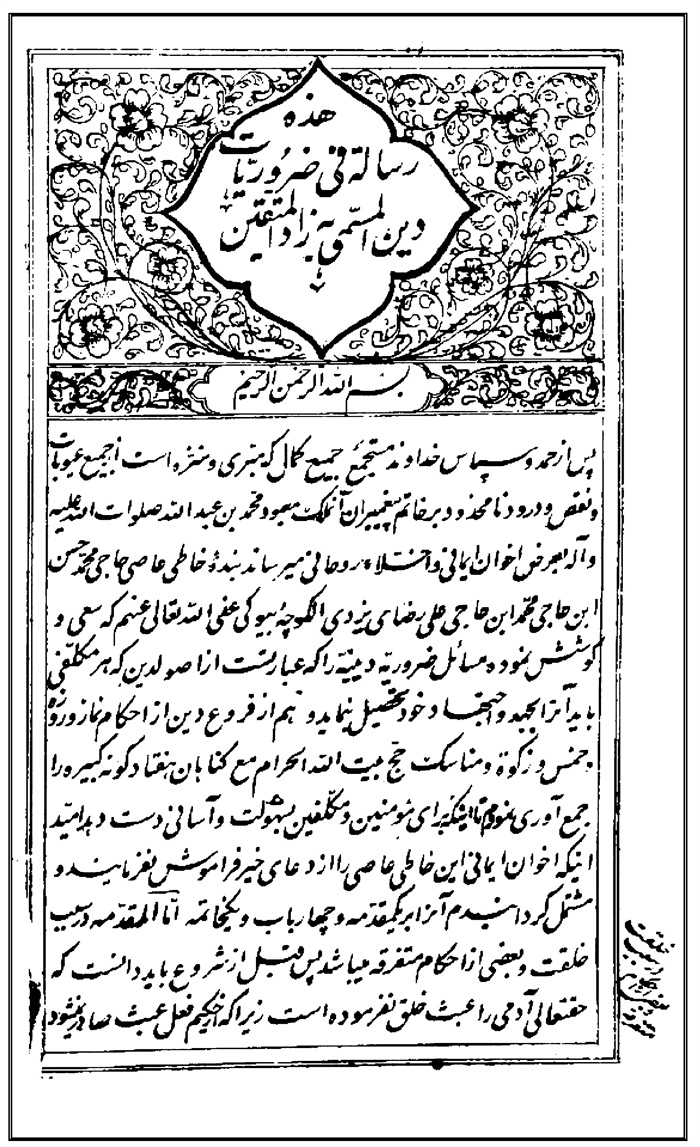 هذه
رسالة فی ضروریات
دین المسمی به زاد المتقین
بسم الله الرحمن الرحیم
پس از حمد و سپاس خداوند مستجمع جمیع کمال که مبری و منزه است از جمیع عیوبات
و نقص و درود نامحدود بر خاتم پیغمبران آنملک معبود محمد بن عبد الله صلوات الله علیه
و آله بعرض اخوان ایمانی و اخلاء روحانی میرساند بندهٔ خاطی عاصی حاجی محمد حسن
ابن حاجی محمد ابن حاجی علی رضای یزدی الکوچه بیوکی عفی الله تعالی عنهم که سعی و
کوشش نموده مسائل ضروریه دینیه را که عبارتست از اصولدین که هر مکلفی
باید آنرا بجهد و اجتهاد خود تحصیل نماید و هم از فروع دین از احکام نماز و روزه
و خمس و زکوة و مناسک حج بیت الله الحرام مع کناهان هفتاد کونه کبیره را
جمع آوری نمودم تا اینکه برای مؤمنین و مکلفین بسهولت و آسانی دست دهد امید
اینکه اخوان ایمانی این خاطی عاصی را از دعای خیر فراموش نفرمایند و
مشتمل کردانیدم آنرا بر یکمقدمه و چهار باب و یکخاتمه اما المقدمه در سبب
خلقت و بعضی از احکام متفرقه میباشد پس قبل از شروع باید دانست که
حقتعالی آدمی را عبث خلق نفرموده است زیرا که از حکیم فعل عبث صادر نمیشود
خلقت